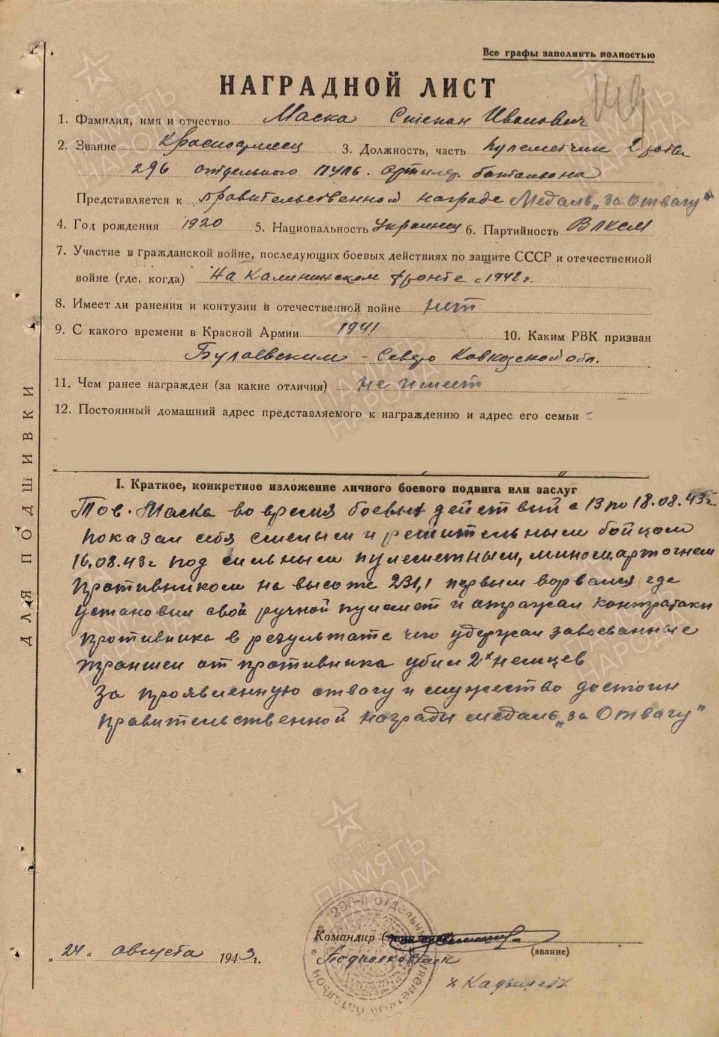 Все графы заполнять полностью
НАГРАДНОЙ ЛИСТ
1. Фамилия, имя и отчество Маска Степан Иванович
2. Звание Красноармеец 3. Должность, часть Пулеметчик 2 роты
296 отдельного пуль. артилер. баталиона
Представляется к правительственной награде Медаль „за Отвагу"
4. Год рождения 1920 5. Национальность Украинец 6. Партийность ВЛКСМ
7. Участие в гражданской войне, последующих боевых действиях по защите СССР и отечественной
войне (где, когда) На Калининском фронте с 1942г.
8. Имеет ли ранения и контузии в отечественной войне нет
9. С какого времени в Красной Армии 1941 10. Каким РВК призван
Булаевским - Северо Кавказской обл.
11. Чем ранее награжден (за какие отличия) не имеет
12. Постоянный домашний адрес представляемого к награждению и адрес его семьи
I. Краткое, конкретное изложение личного боевого подвига или заслуг
Тов. Маска во время боевых действий с 13 по 18.08.43г
показал себя смелым и решительным бойцом
16.08.43г под сильным пулеметным, миномарт огнем
Противником на высоте 231,1 первым ворвался где
установил свой ручной пулемет и отражал контратаки
противника в результате чего удержал завоеванные
траншеи от противника убил 2х немцев
За проявленную отвагу и мужество достоин
правительственной награды медаль „за Отвагу"
Командир
(звание)
Подполковник
„24" августа 1943 г.
ДЛЯ ПОДШИВКИ
ПАМЯТЬ НАРОДА